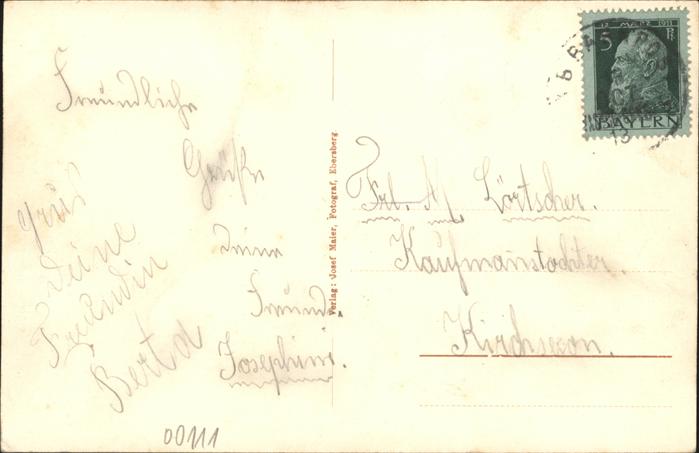 Freundliche
Grüße
deine
Freund.
Josephine.
grüß
deine
Freundin
Berta
00111
Verlag: Josef Maier, Fotograf, Ebersberg
12. MÄRZ 1911
5 Pf
BAYERN
13
Frl. M. Lörtscher.
Kaufmanstochter.
Kirchseon.